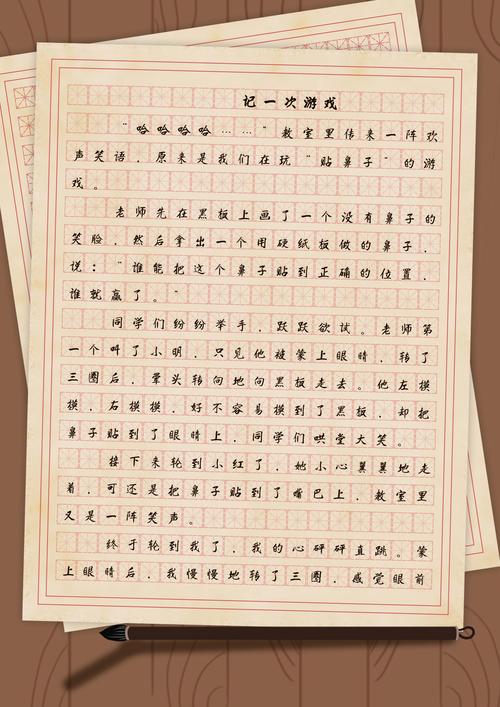 记一次游戏
“哈哈哈哈……”教室里传来一阵欢
声笑语，原来是我们在玩“贴鼻子”的游
戏。
老师先在黑板上画了一个没有鼻子的
笑脸，然后拿出一个用硬纸板做的鼻子，
说：“谁能把这个鼻子贴到正确的位置，
谁就赢了。”
同学们纷纷举手，跃跃欲试。老师第
一个叫了小明，只见他被蒙上眼睛，转了
三圈后，晕头转向地向黑板走去。他左摸
摸，右摸摸，好不容易摸到了黑板，却把
鼻子贴到了眼睛上，同学们哄堂大笑。
接下来轮到小红了，她小心翼翼地走
着，可还是把鼻子贴到了嘴巴上，教室里
又是一阵笑声。
终于轮到我了，我的心砰砰直跳。蒙
上眼睛后，我慢慢地转了三圈，感觉眼前